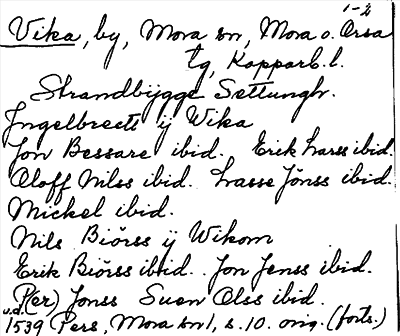 1-2
Vika, by, Mora sn, Mora o. Orsa
tg, Kopparb. l.
Strandbygge Settungh.
Jngelbrect ij Wika
Jon Bessare ibid. Erik Larss ibid.
Oloff Nilss ibid. Lasse Jönss ibid.
Mickel ibid.
Nils Biörss ij Wikom
Erik Biörss ibid. Jon Jenss ibid.
P(er) Jonss Suen Olss ibid.
u.d.
1539 Pers, Mora sn 1, s. 10. orig. (forts.)